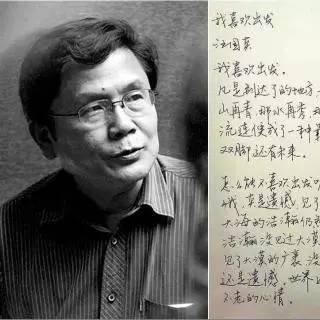 我喜欢出发
汪国真
我喜欢出发。
凡是到达了的地方
山再青,那水再秀,
流连便成了一种
双脚还有未来。
怎么能不喜欢出发呢
憾,依是遗憾,见了
大海的浩瀚仍
浩瀚没见过大漠
见了大漠的广袤,没
还是遗憾,世界
不老的心情。